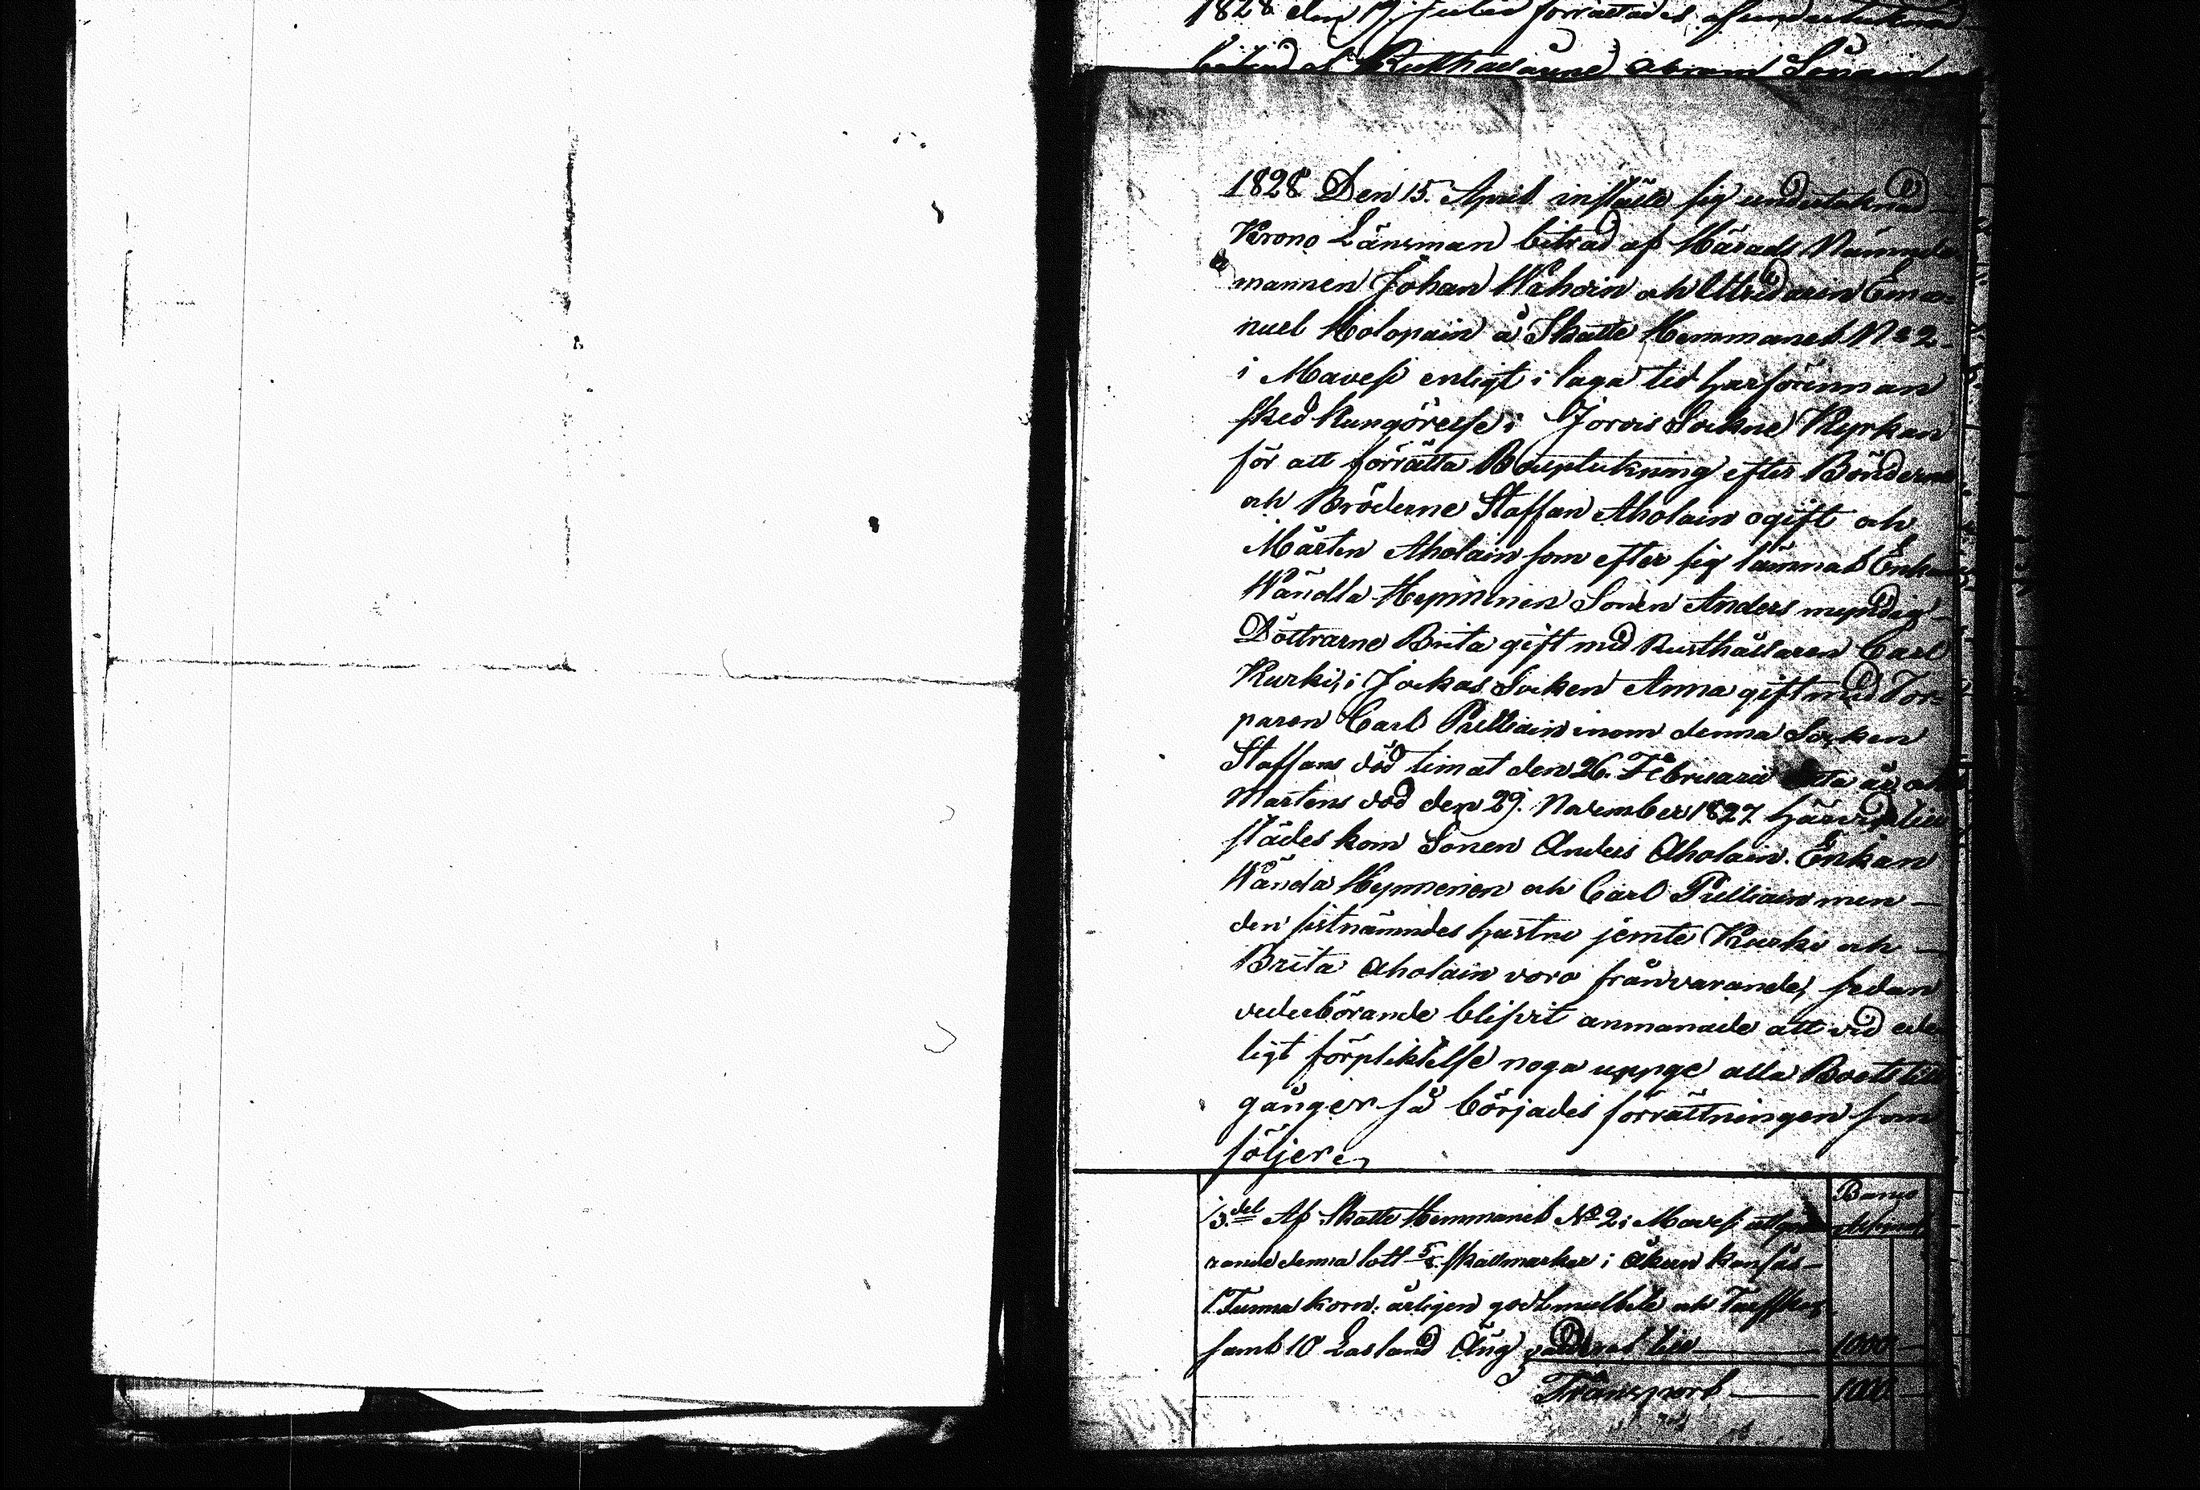 1828 den 17 Julii förrättades af undertecknad
biträd af Rusthållarne Abram
1828 Den 15. April instälte sig undertecknad
Krono Länsman biträd af Härads Nämnde
mannen Johan Wahvin och Uttridaren Ema-
nuel Holopain å Skatte Hemmanet No 2
i Mavesi enligt i laga tid härförinnan
sked Kungörelse i Jorois Sockne Kyrkan
för att förrätta Bouptekning efter Bönderne
och Bröderne Staffan Aholain ogift och
Mårten Aholain som efter sig lämnat Enkan
Wändla Hyminen Sonen Anders myndig
Döttrarne Brita gift med Rusthållaren Carl
Kurki, i Jockas Socken Anna gift med Tor-
paren Carl Pulliain inom denna Socken
Staffans död timat den 26. Februarii detta år och
Mårtens död den 29. November 1827 härvid till
städes kom Sonen Anders Aholain. Enkan
Wända Hynninen och Carl Pulliain men
den sistnämndes hustru jemte Kurki och
Brita Aholain voro frånvarande, sedan
vederbörande blifvit anmanade att vid ede
ligt förpliktelse noga uppge alla Boets till
gånger så börjades förrättningen som
följer
Banco
1/3 del Af Skatte Hemmanet No 2 i Mavesi utgö
rande denna lott 5/8 skattmarker i Åkern kan sås
1 Tunna korn: årligen godt mulbete och
samt 10 Äng värderat till 1000
Transport 1000